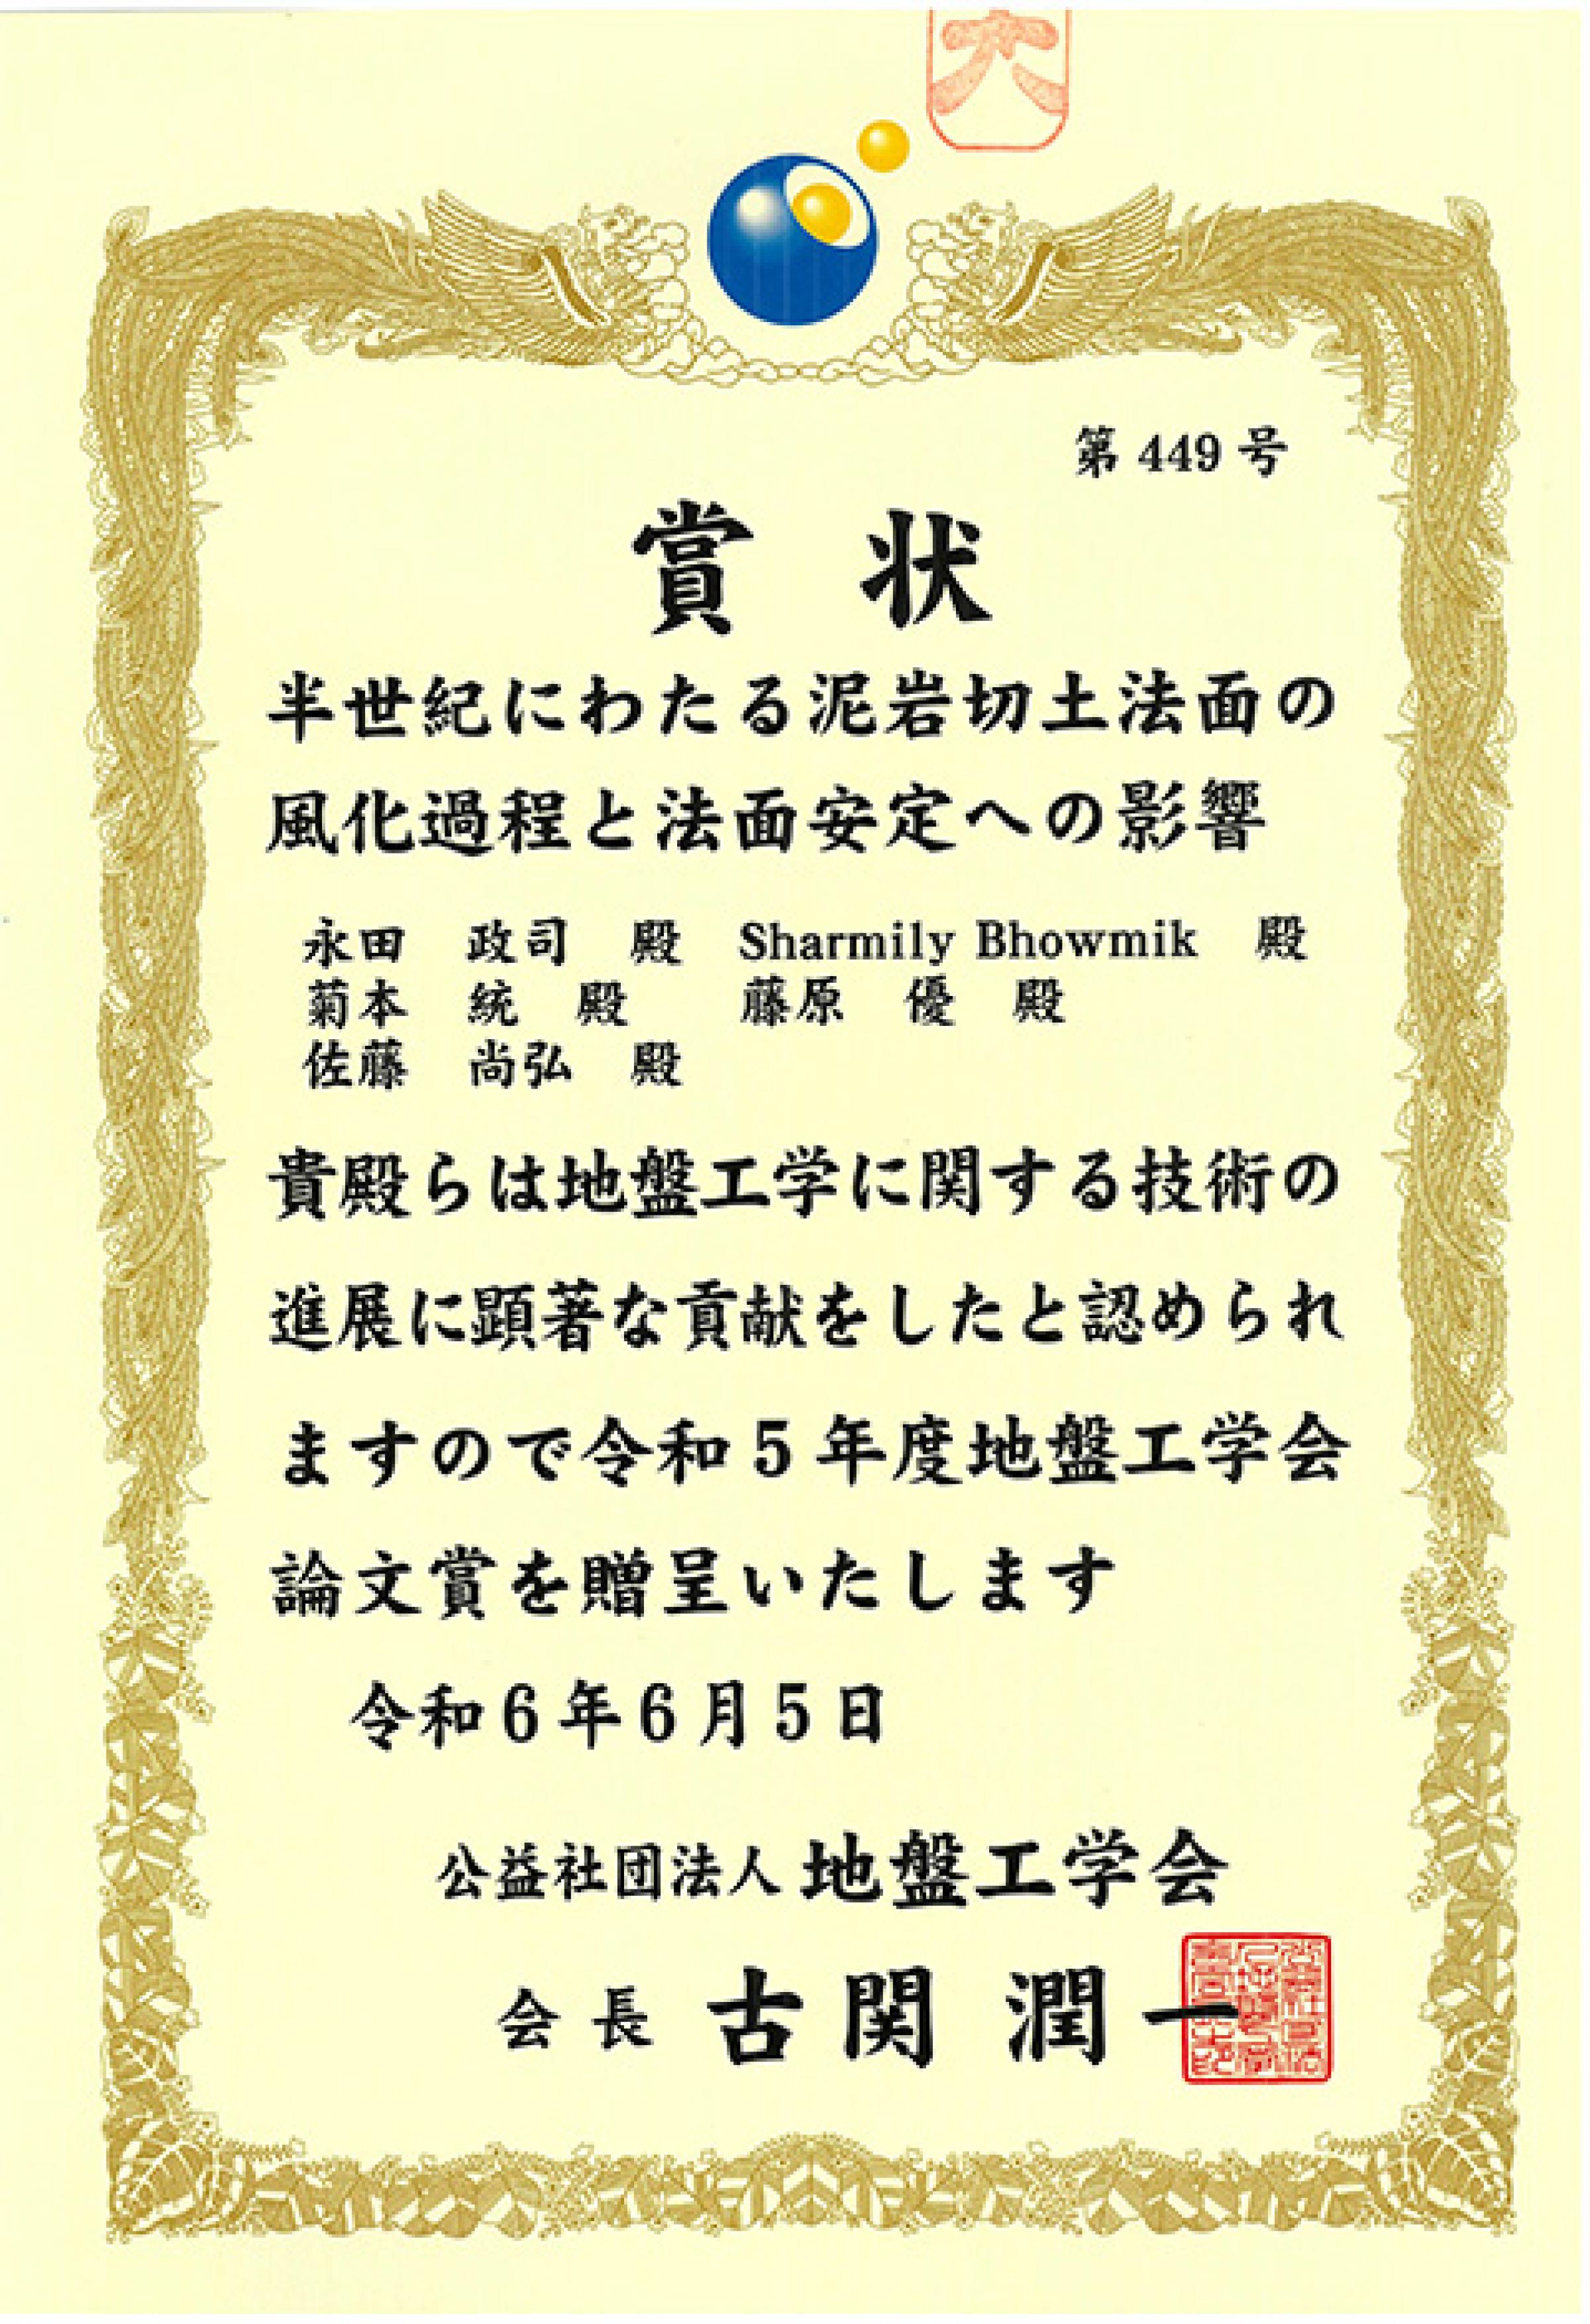 第449号
賞状
半世紀にわたる泥岩切土法面の
風化過程と法面安定への影響
永田 政司 殿 Sharmily Bhowmik 殿
菊本 統 殿 藤原 優 殿
佐藤 尚弘 殿
貴殿らは地盤工学に関する技術の
進展に顕著な貢献をしたと認められ
ますので令和5年度地盤工学会
論文賞を贈呈いたします
令和6年6月5日
公益社団法人 地盤工学会
会長 古関 潤一